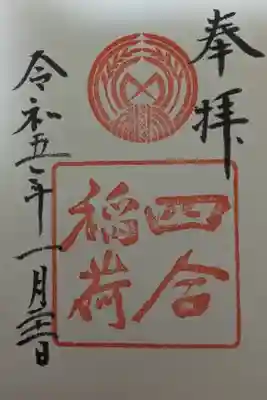 奉拝
四合
稲荷
令和五年一月日